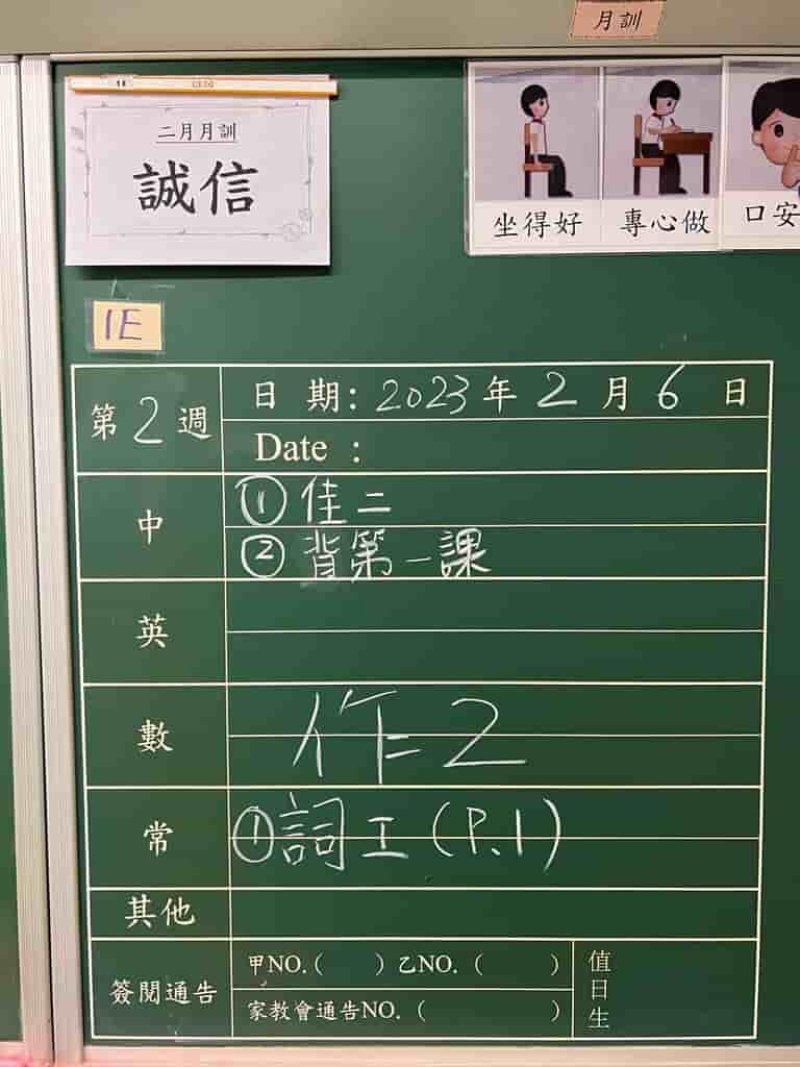 月訓
二月月訓
誠信
坐得好
專心做
口安
1E
第2週
日期：2023年2月6日
Date：
中
①佳二
②背第一課
英
數
作2
常
①詞工（P.1）
其他
簽閱通告
甲NO.（　　）乙NO.（　　）
家教會通告NO.（　　）
值日生